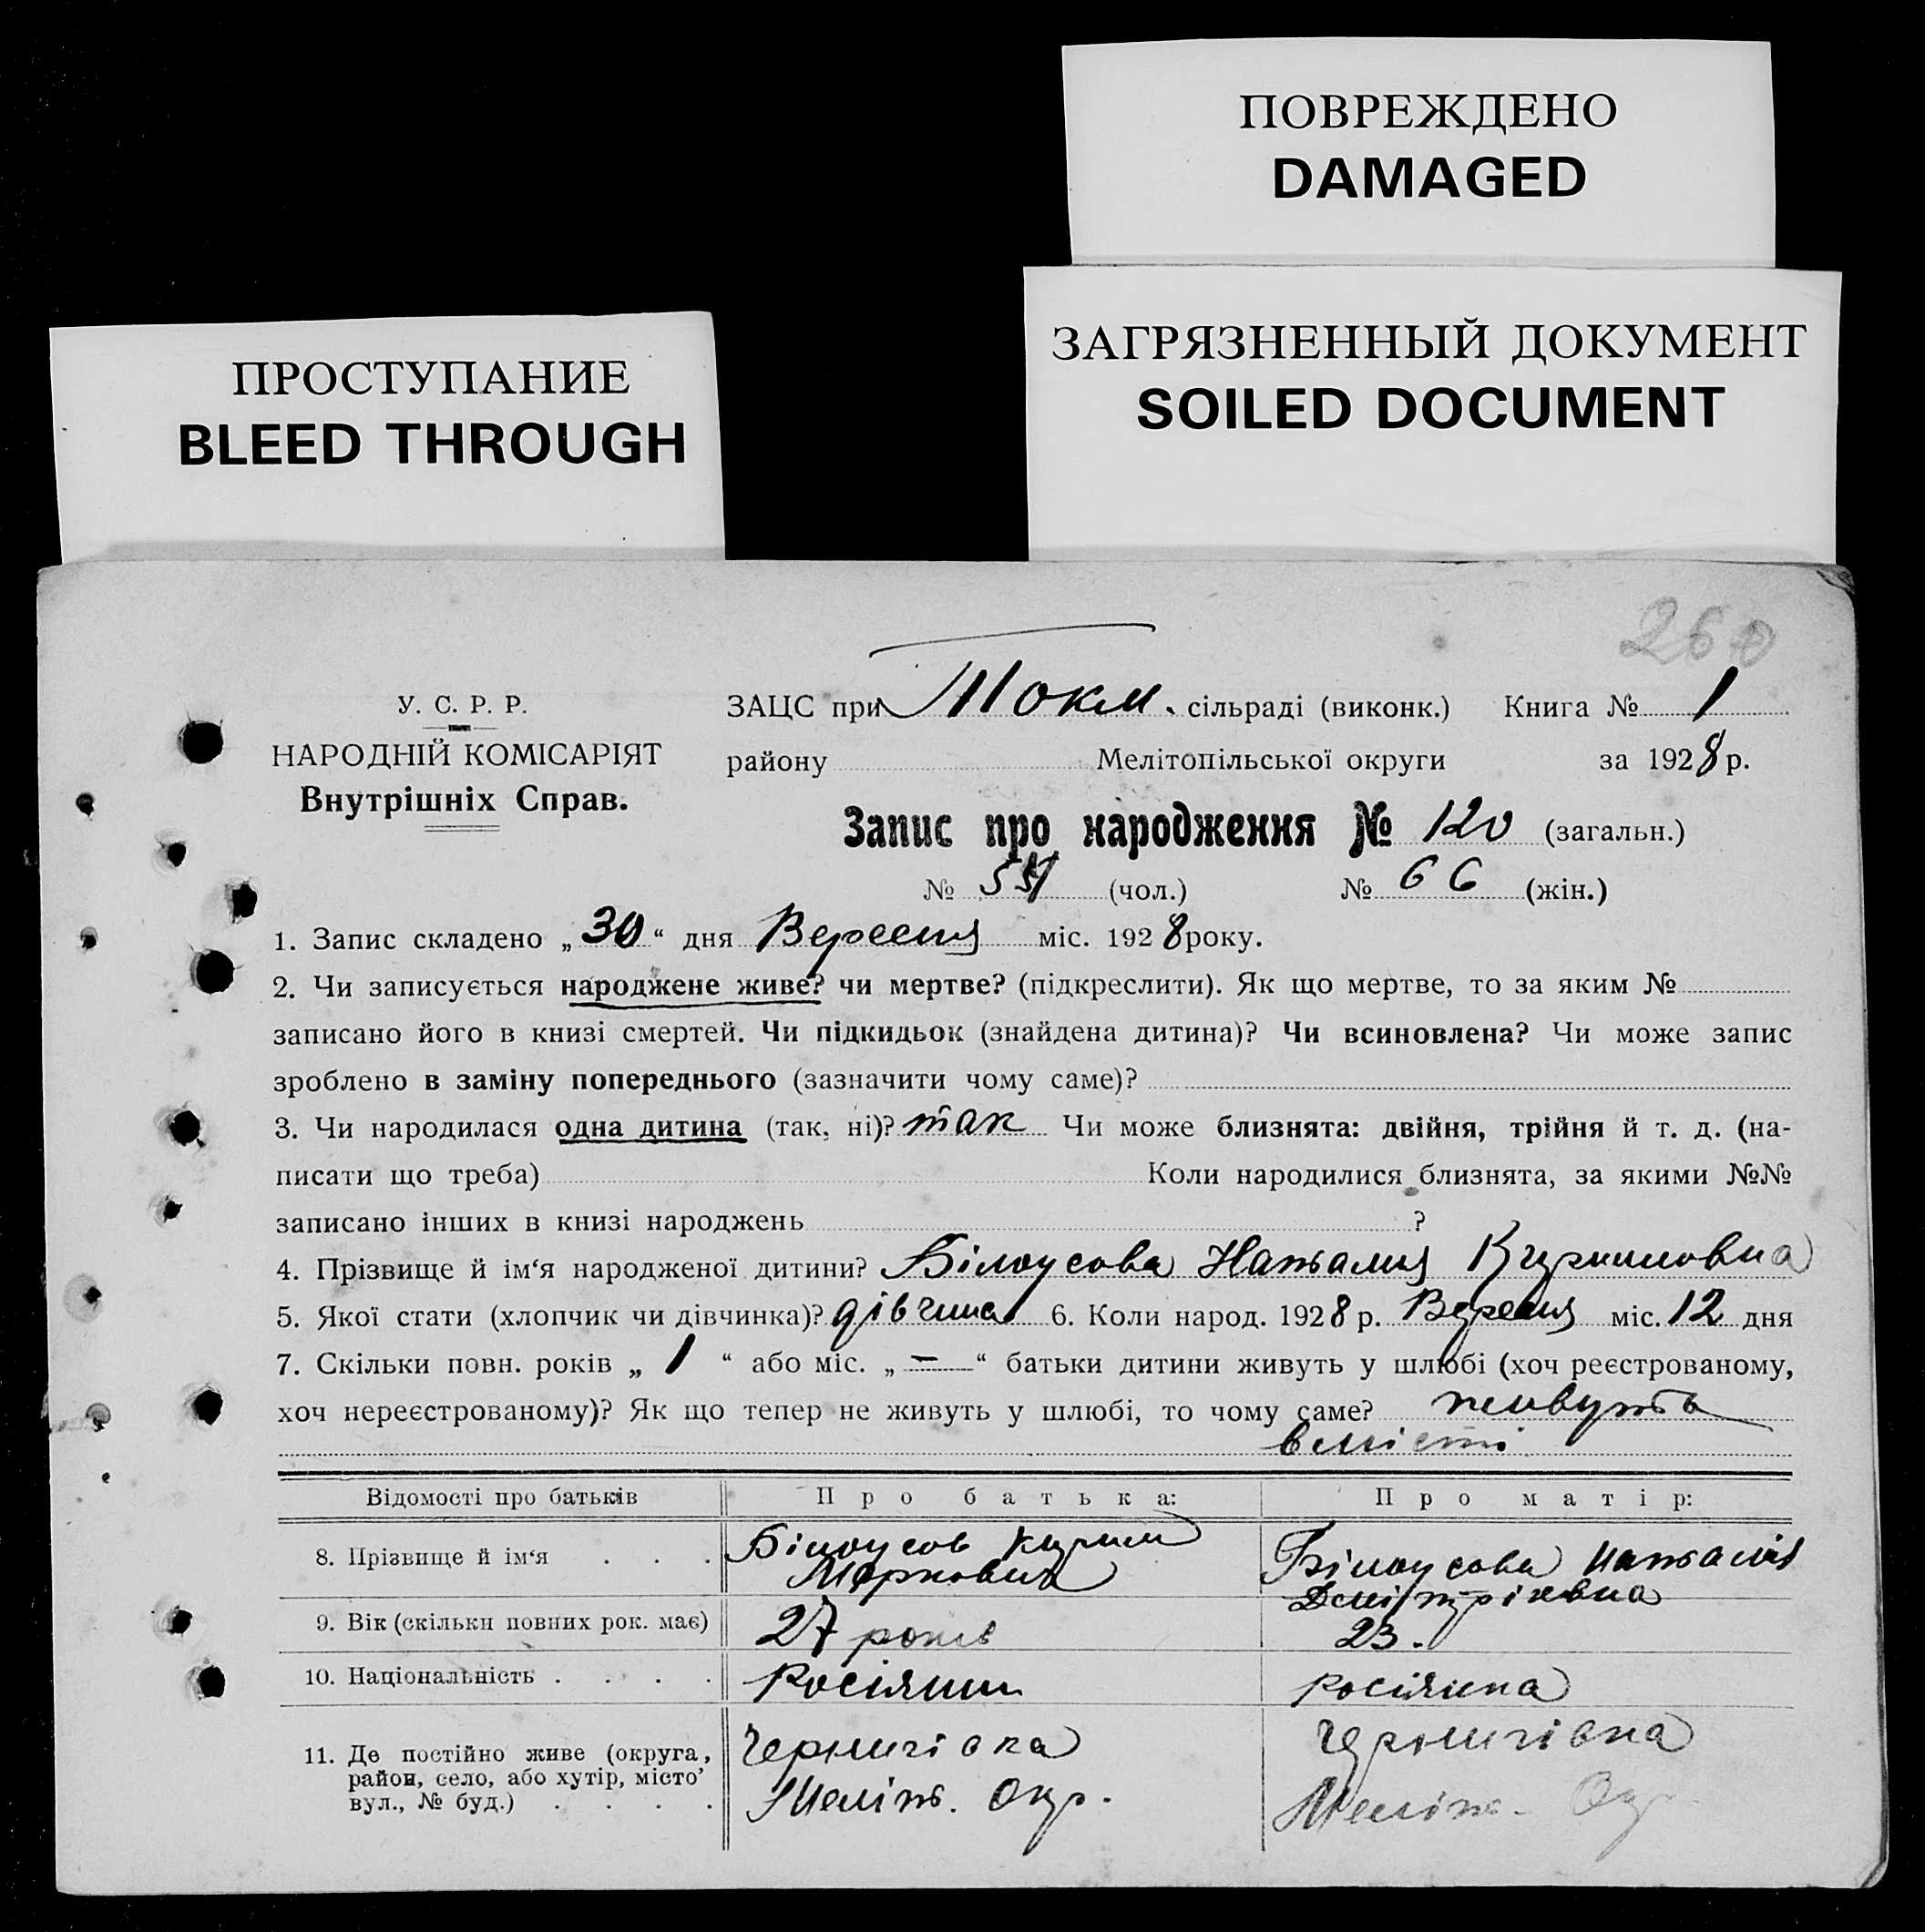 ПОВРЕЖДЕНО
DAMAGED
ЗАГРЯЗНЕННЫЙ ДОКУМЕНТ
SOILED DOCUMENT
ПРОСТУПАНИЕ
BLEED THROUGH
260
У. С. Р. Р.
НАРОДНІЙ КОМІСАРІЯТ
Внутрішніх Справ.
ЗАЦС при Токм. сільраді (виконк.) Книга № 1
району Мелітопільської округи за 1928 р.
Запис про народження № 120 (загальн.)
№ 54 (чол.) № 66 (жін.)
1. Запис складено „30“ дня Вересня міс. 1928 року.
2. Чи записується народжене живе? чи мертве? (підкреслити). Як що мертве, то за яким №
записано його в книзі смертей. Чи підкидьок (знайдена дитина)? Чи всиновлена? Чи може запис
зроблено в заміну попереднього (зазначити чому саме)?
3. Чи народилася одна дитина (так, ні)? так Чи може близнята: двійня, трійня й т. д. (на-
писати що треба) Коли народилися близнята, за якими №№
записано інших в книзі народжень ?
4. Прізвище й ім‘я народженої дитини? Білоусова Наталия Кириловна
5. Якої стати (хлопчик чи дівчинка)? дівчина 6. Коли народ. 1928 р. Вересня міс. 12 дня
7. Скільки повн. років „ 1 “ або міс. „ — “ батьки дитини живуть у шлюбі (хоч реєстрованому,
хоч нереєстрованому)? Як що тепер не живуть у шлюбі, то чому саме? живуть
вмісті
Відомості про батьків Про батька: Про матір:
8. Прізвище й ім‘я . . . Білоусов Кирил Білоусова Наталія
Маркович Дмітріївна
9. Вік (скільки повних рок. має) 27 років 23.
10. Національність . . . . Росіянин росіянка
11. Де постійно живе (округа, Чернигівка Чернигівка
район, село, або хутір, місто’
вул., № буд.) . . . . Меліт. Окр. Меліт. Окр.